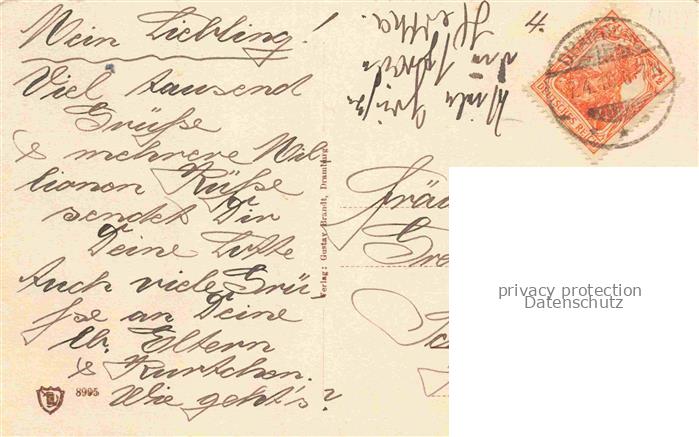 Mein Liebling!
Viel tausend
Grüße
& mehrere Mil-
lionen Küße
sendet Dir
Deine Lotte
Auch viele Grü-
ße an Deine
lb. Eltern
& Kurtchen.
Wie geht's?
8995
Verlag: Gustav Brandt, Dramburg.
Viele Grüße
Hertha.
4.
DEUTSCHES REICH
7½
Fräu
privacy protection
Datenschutz